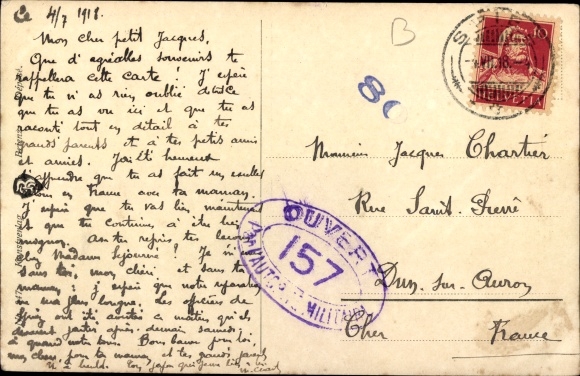 Ce 4/7 1918.
Mon cher petit Jacques,
Que d'agréables souvenirs te
rappellera cette carte! J'espère
que tu n'as rien oublié de tout ce
que tu as vu ici et que tu as
raconté tout en détail à tes
grands parents et à tes petits amis
et amies. J'ai été heureux
d'apprendre que tu as fait un
en France avec ta maman.
J'espère que tu vas bien maintenant
et que tu continues à être bien
mignon. As tu repris tes leçons
chez Madame Lejeune? Je
sans toi, mon chéri et sans ta
maman; j'espère que notre séparation
ne sera plus longue. Les officiers de
ont été avertis ce matin qu'ils
devaient partir après-demain samedi;
à quand notre tour. Bons baisers pour toi
mon chéri, pour ta maman et tes grands parents
B
80
HELVETIA
10
OUVERT
PAR L'AUTORITÉ MILITAIRE
157
Monsieur Jacques Chartier
Rue Saint
Dun-sur-Auron
Cher France